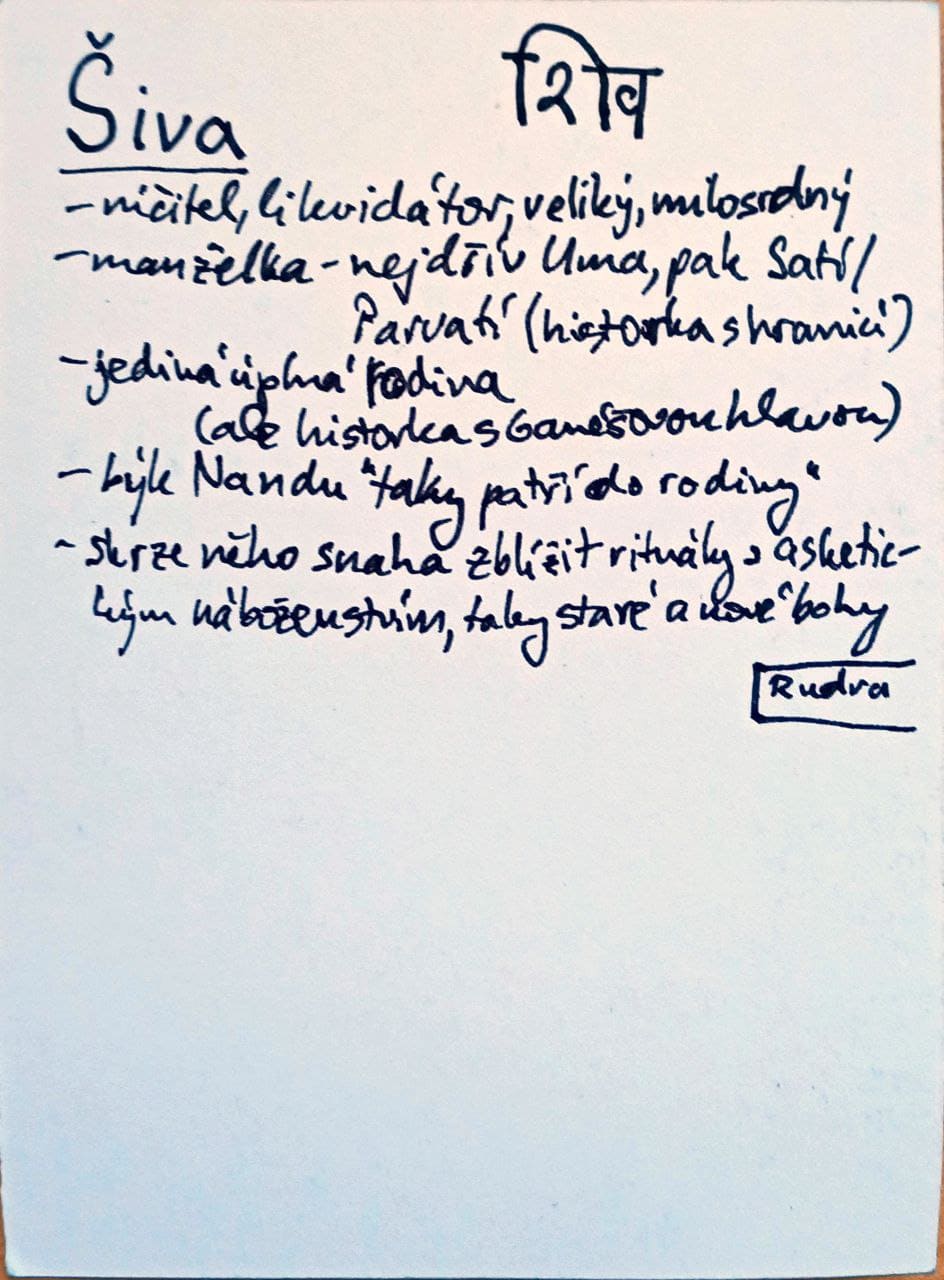 Šiva शिव
- ničitel, likvidátor, veliký, milosrdný
- manželka - nejdřív Uma, pak Satí/
Parvatí (historka s hranicí)
- jediná úplná rodina
(ale historka s Ganéšovou hlavou)
- býk Nandu "taky patří do rodiny"
- skrze něho snaha zblížit rituály s asketic-
kým náboženstvím, taky staré a nové bohy
Rudra